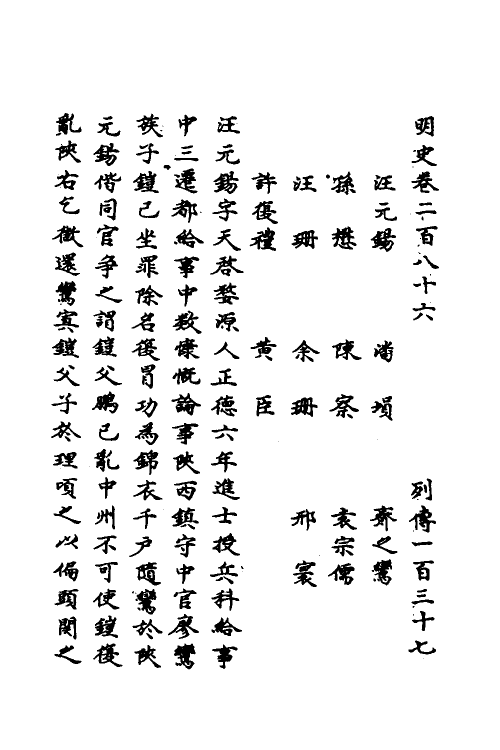 明史卷二百八十六 列傳一百三十七
汪元錫 潘塤 齊之鸞
孫懋 陳察 袁宗儒
汪珊 余珊 邢寰
許復禮 黃臣
汪元錫字天啓婺源人正德六年進士授兵科給事
中三遷都給事中数慷慨論事陜西鎮守中官廖鸞
族子鎧已坐罪除名復冒功為錦衣千户隨鸞於陜
元錫偕同官争之謂鎧父鵬已亂中州不可使鎧復
亂陜右乞徵還鸞寘鎧父子於理頃之以偏頭關之